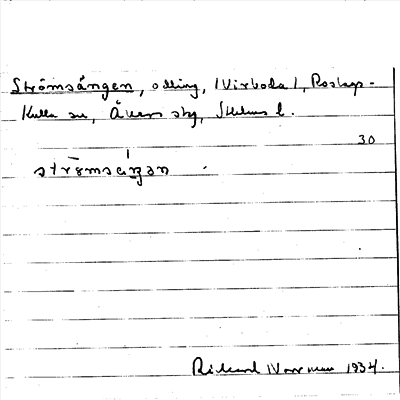 Strömsängen, odling, (Virboda), Roslags-
Kulla sn, Åkers skg, Sthlms l.
30
strömsäŋən
Rickard Norrman 1934.